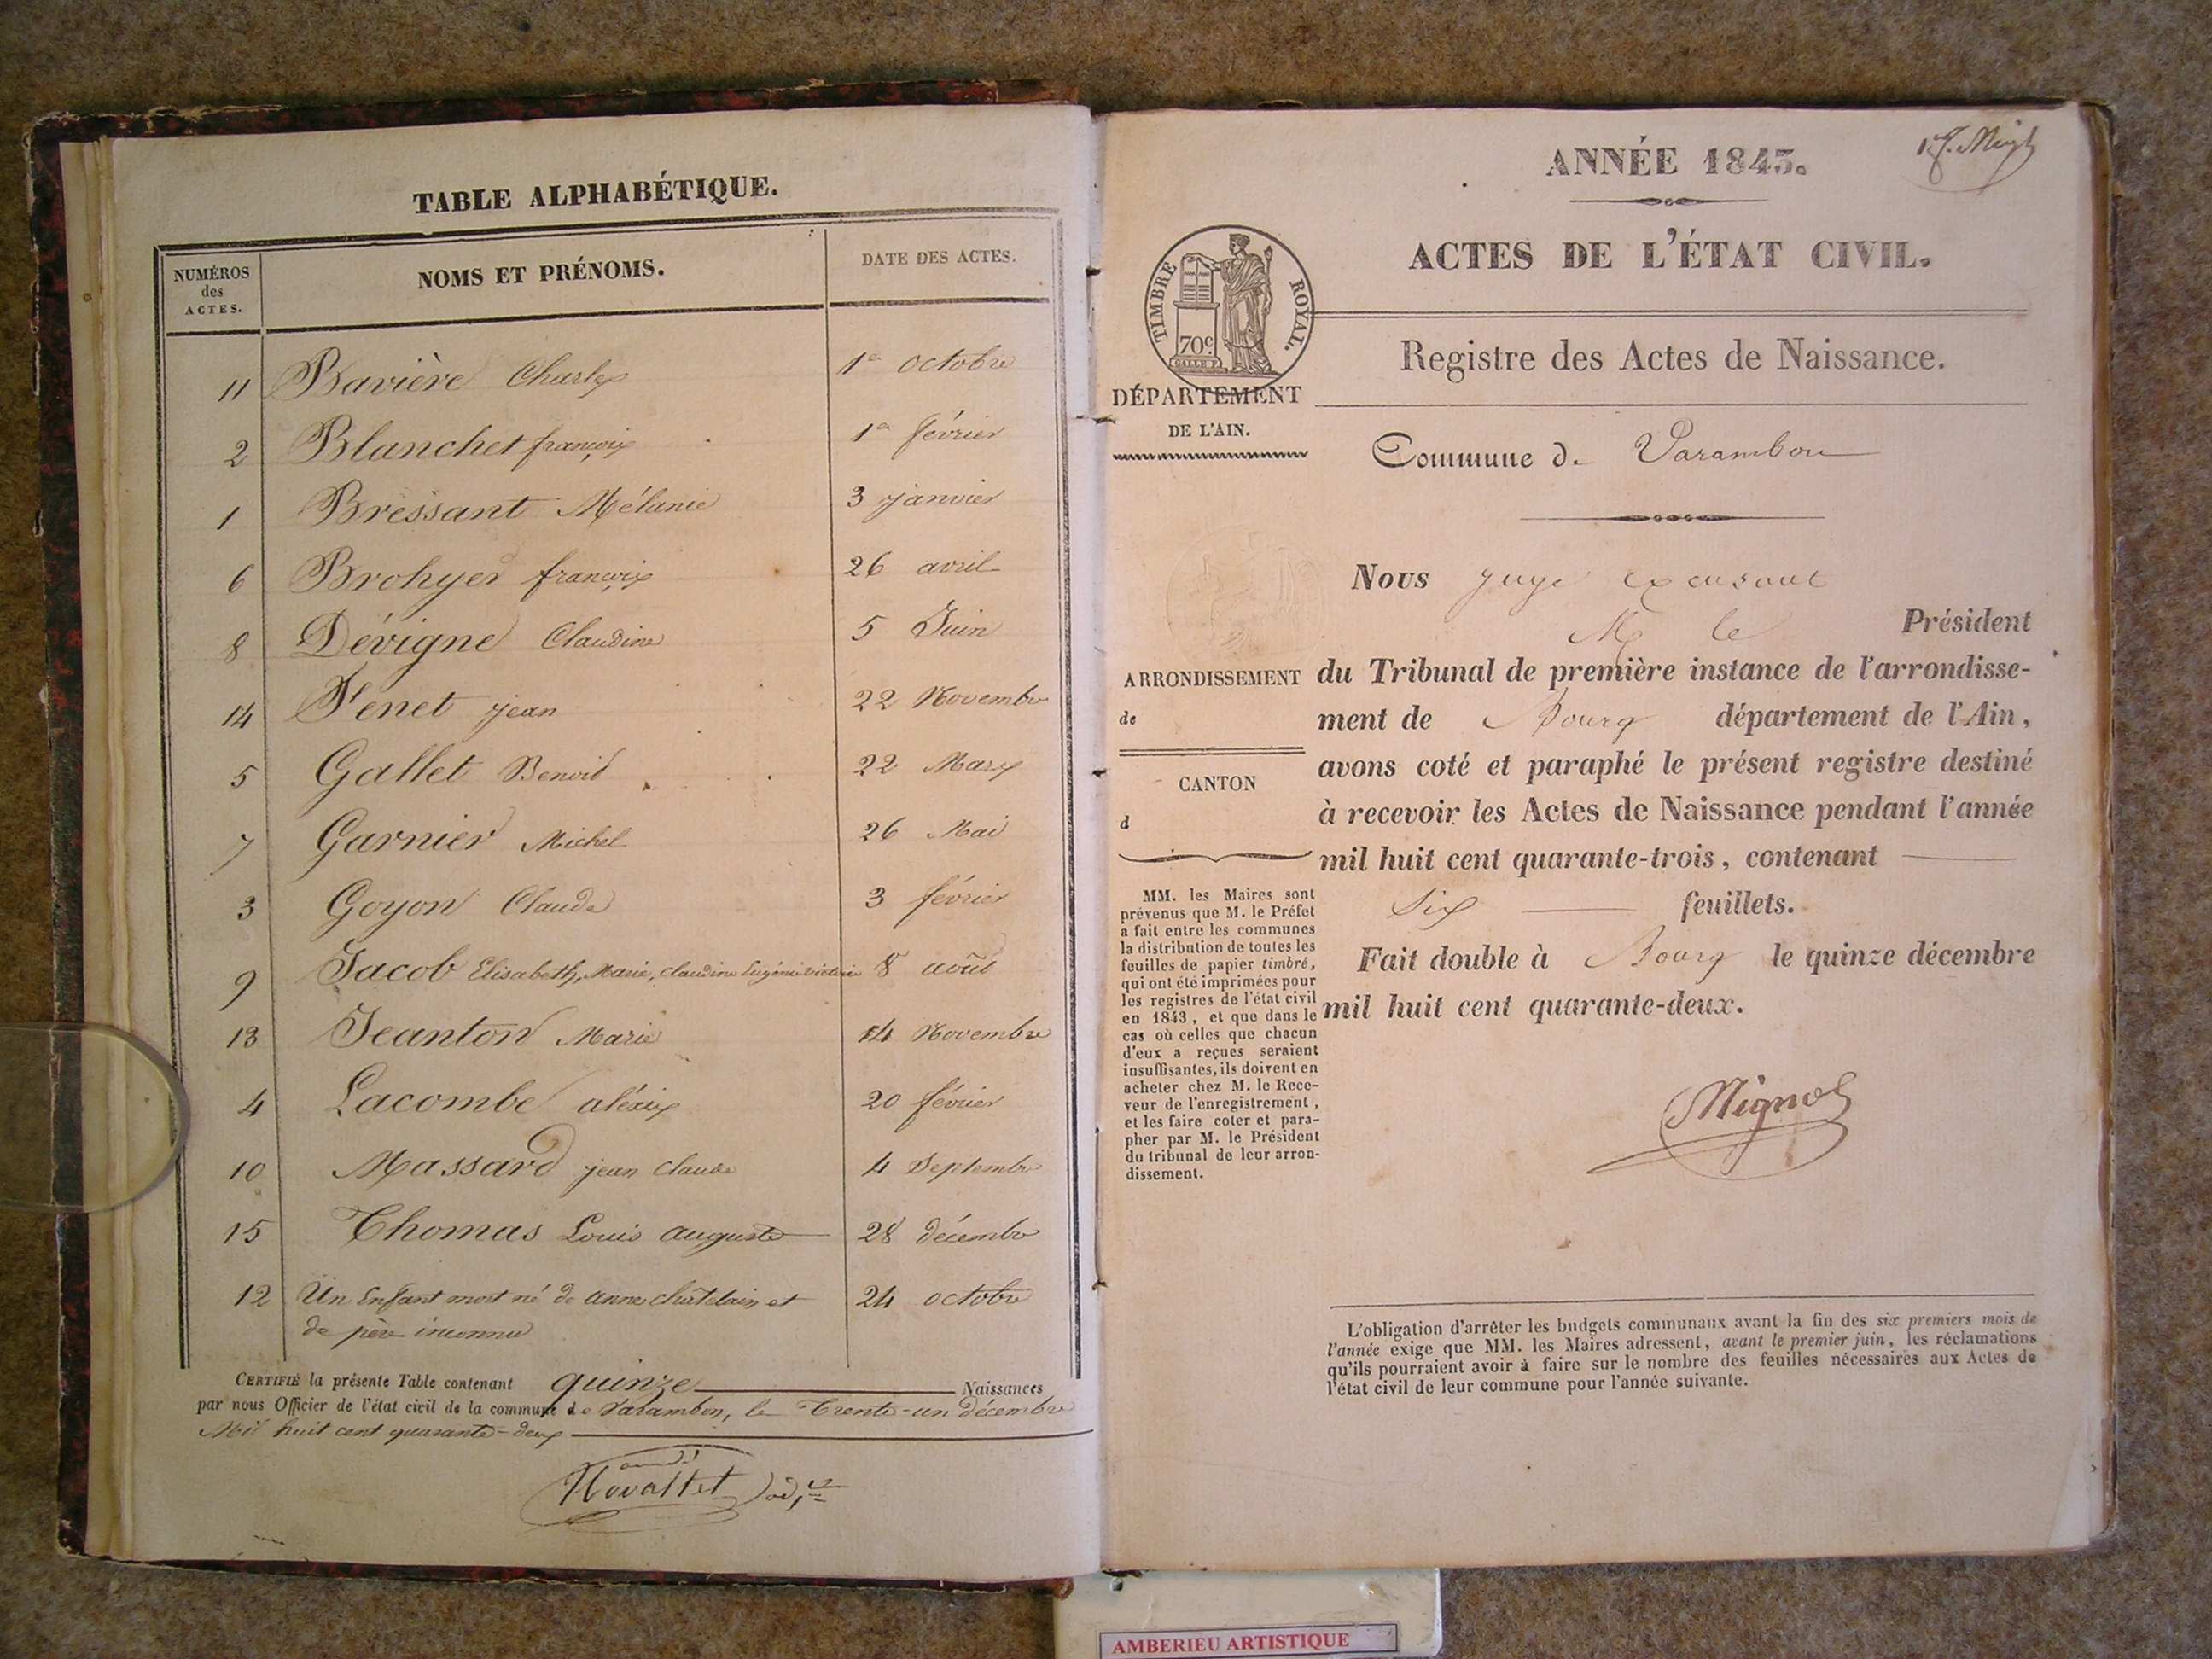 TABLE ALPHABÉTIQUE.
NUMÉROS des ACTES.
NOMS ET PRÉNOMS.
DATE DES ACTES.
11 Bavière Charles 1er octobre
2 Blanchet françois 1er février
1 Bressant Mélanie 3 janvier
6 Brohyer françois 26 avril
8 Dévigne Claudine 5 Juin
14 Fenet jean 22 Novembre
5 Gallet Benoit 22 Mars
7 Garnier Michel 26 Mai
3 Goyon Claude 3 février
9 Jacob Elisabeth, Marie, Claudine Eugénie victorie 8 août
13 Jeanton Marie 14 Novembre
4 Lacombe aléxis 20 février
10 Massard jean Claude 4 Septembre
15 Thomas Louis auguste 28 décembre
12 Un Enfant mort né de anne Châtelain et 24 octobre
de père inconnu
CERTIFIÉ la présente Table contenant quinze Naissances
par nous Officier de l'état civil de la commune de Varambon, le Trente-un décembre
Mil huit cent quarante-deux
ANNÉE 1843.
ACTES DE L'ÉTAT CIVIL.
TIMBRE ROYAL.
70c
DÉPARTEMENT
DE L'AIN.
Registre des Actes de Naissance.
Commune de Varambon
Nous juge excusant
M le Président
ARRONDISSEMENT
de
CANTON
d
du Tribunal de première instance de l'arrondisse-
ment de Bourg département de l'Ain,
avons coté et paraphé le présent registre destiné
à recevoir les Actes de Naissance pendant l'année
mil huit cent quarante-trois, contenant
six feuillets.
Fait double à Bourg le quinze décembre
mil huit cent quarante-deux.
MM. les Maires sont
prévenus que M. le Préfet
a fait entre les communes
la distribution de toutes les
feuilles de papier timbré,
qui ont été imprimées pour
les registres de l'état civil
en 1843, et que dans le
cas où celles que chacun
d'eux a reçues seraient
insuffisantes, ils doivent en
acheter chez M. le Rece-
veur de l'enregistrement,
et les faire coter et para-
pher par M. le Président
du tribunal de leur arron-
dissement.
Mignot
L'obligation d'arrêter les budgets communaux avant la fin des six premiers mois de
l'année exige que MM. les Maires adressent, avant le premier juin, les réclamations
qu'ils pourraient avoir à faire sur le nombre des feuilles nécessaires aux Actes de
l'état civil de leur commune pour l'année suivante.
AMBERIEU ARTISTIQUE